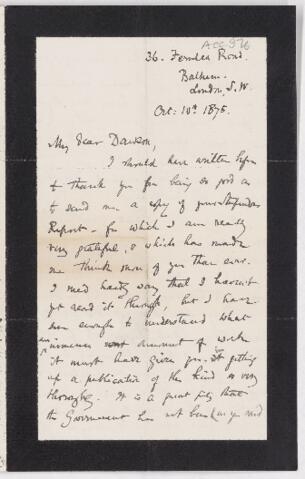 Acc 976
36. Ferndea Road.
Balham.
London, S.W.
Oct: 10th 1875.
My dear Dawson,
I should have written before
to thank you for being so good as
to send me a copy of your
Report - for which I am really
very grateful, & which has made
me think more of you than ever.
I need hardly say that I haven't
yet read it through, but I have
seen enough to understand what
amount of work
it must have given you. getting
up a publication of this kind so very
thoroughly. It is a great pity that
the Government has not as you said